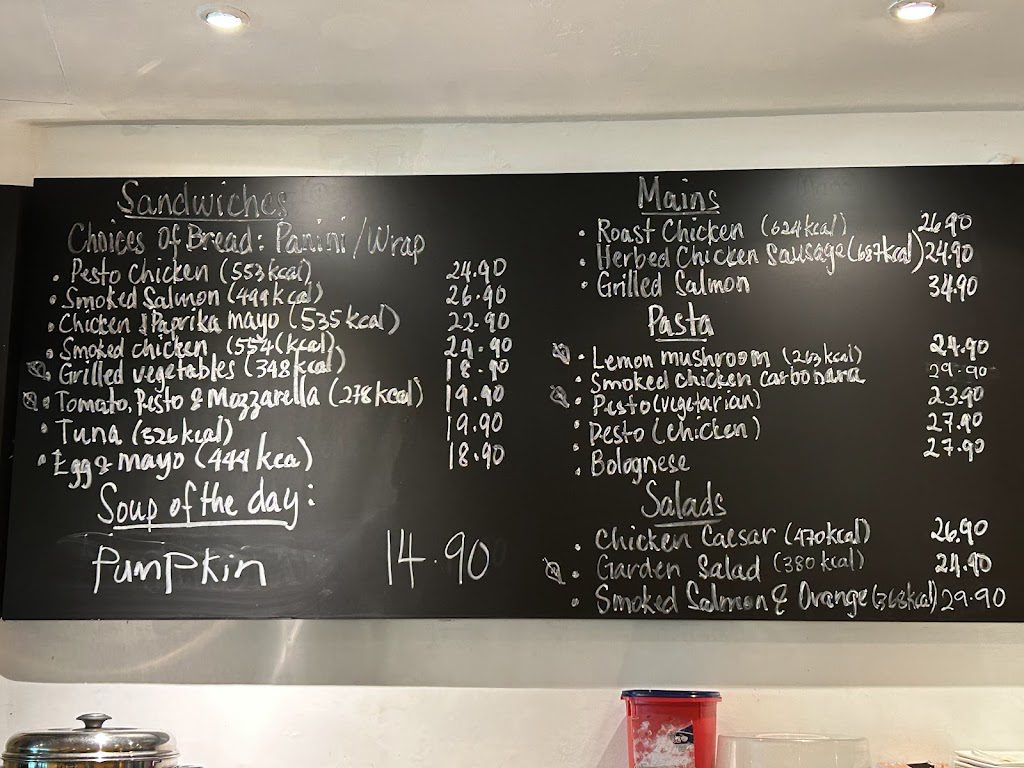 Sandwiches
Choices of Bread: Panini/Wrap
• Pesto Chicken (553kcal) 24.90
• Smoked Salmon (499kcal) 26.90
• Chicken & Paprika mayo (535kcal) 22.90
• Smoked chicken (554kcal) 24.90
• Grilled vegetables (348kcal) 18.90
• Tomato, Pesto & Mozzarella (278kcal) 19.90
• Tuna (526kcal) 19.90
• Egg & mayo (444kca) 18.90
Soup of the day:
Pumpkin 14.90
Mains
• Roast Chicken (624kcal) 26.90
• Herbed Chicken Sausage (687kcal) 24.90
• Grilled Salmon 34.90
Pasta
• Lemon mushroom (263kcal) 24.90
• Smoked chicken carbonara 29.90
• Pesto (vegetarian) 23.90
• Pesto (chicken) 27.90
• Bolognese 27.90
Salads
• Chicken Caesar (470kcal) 26.90
• Garden Salad (380kcal) 24.90
• Smoked Salmon & Orange (368kcal) 29.90